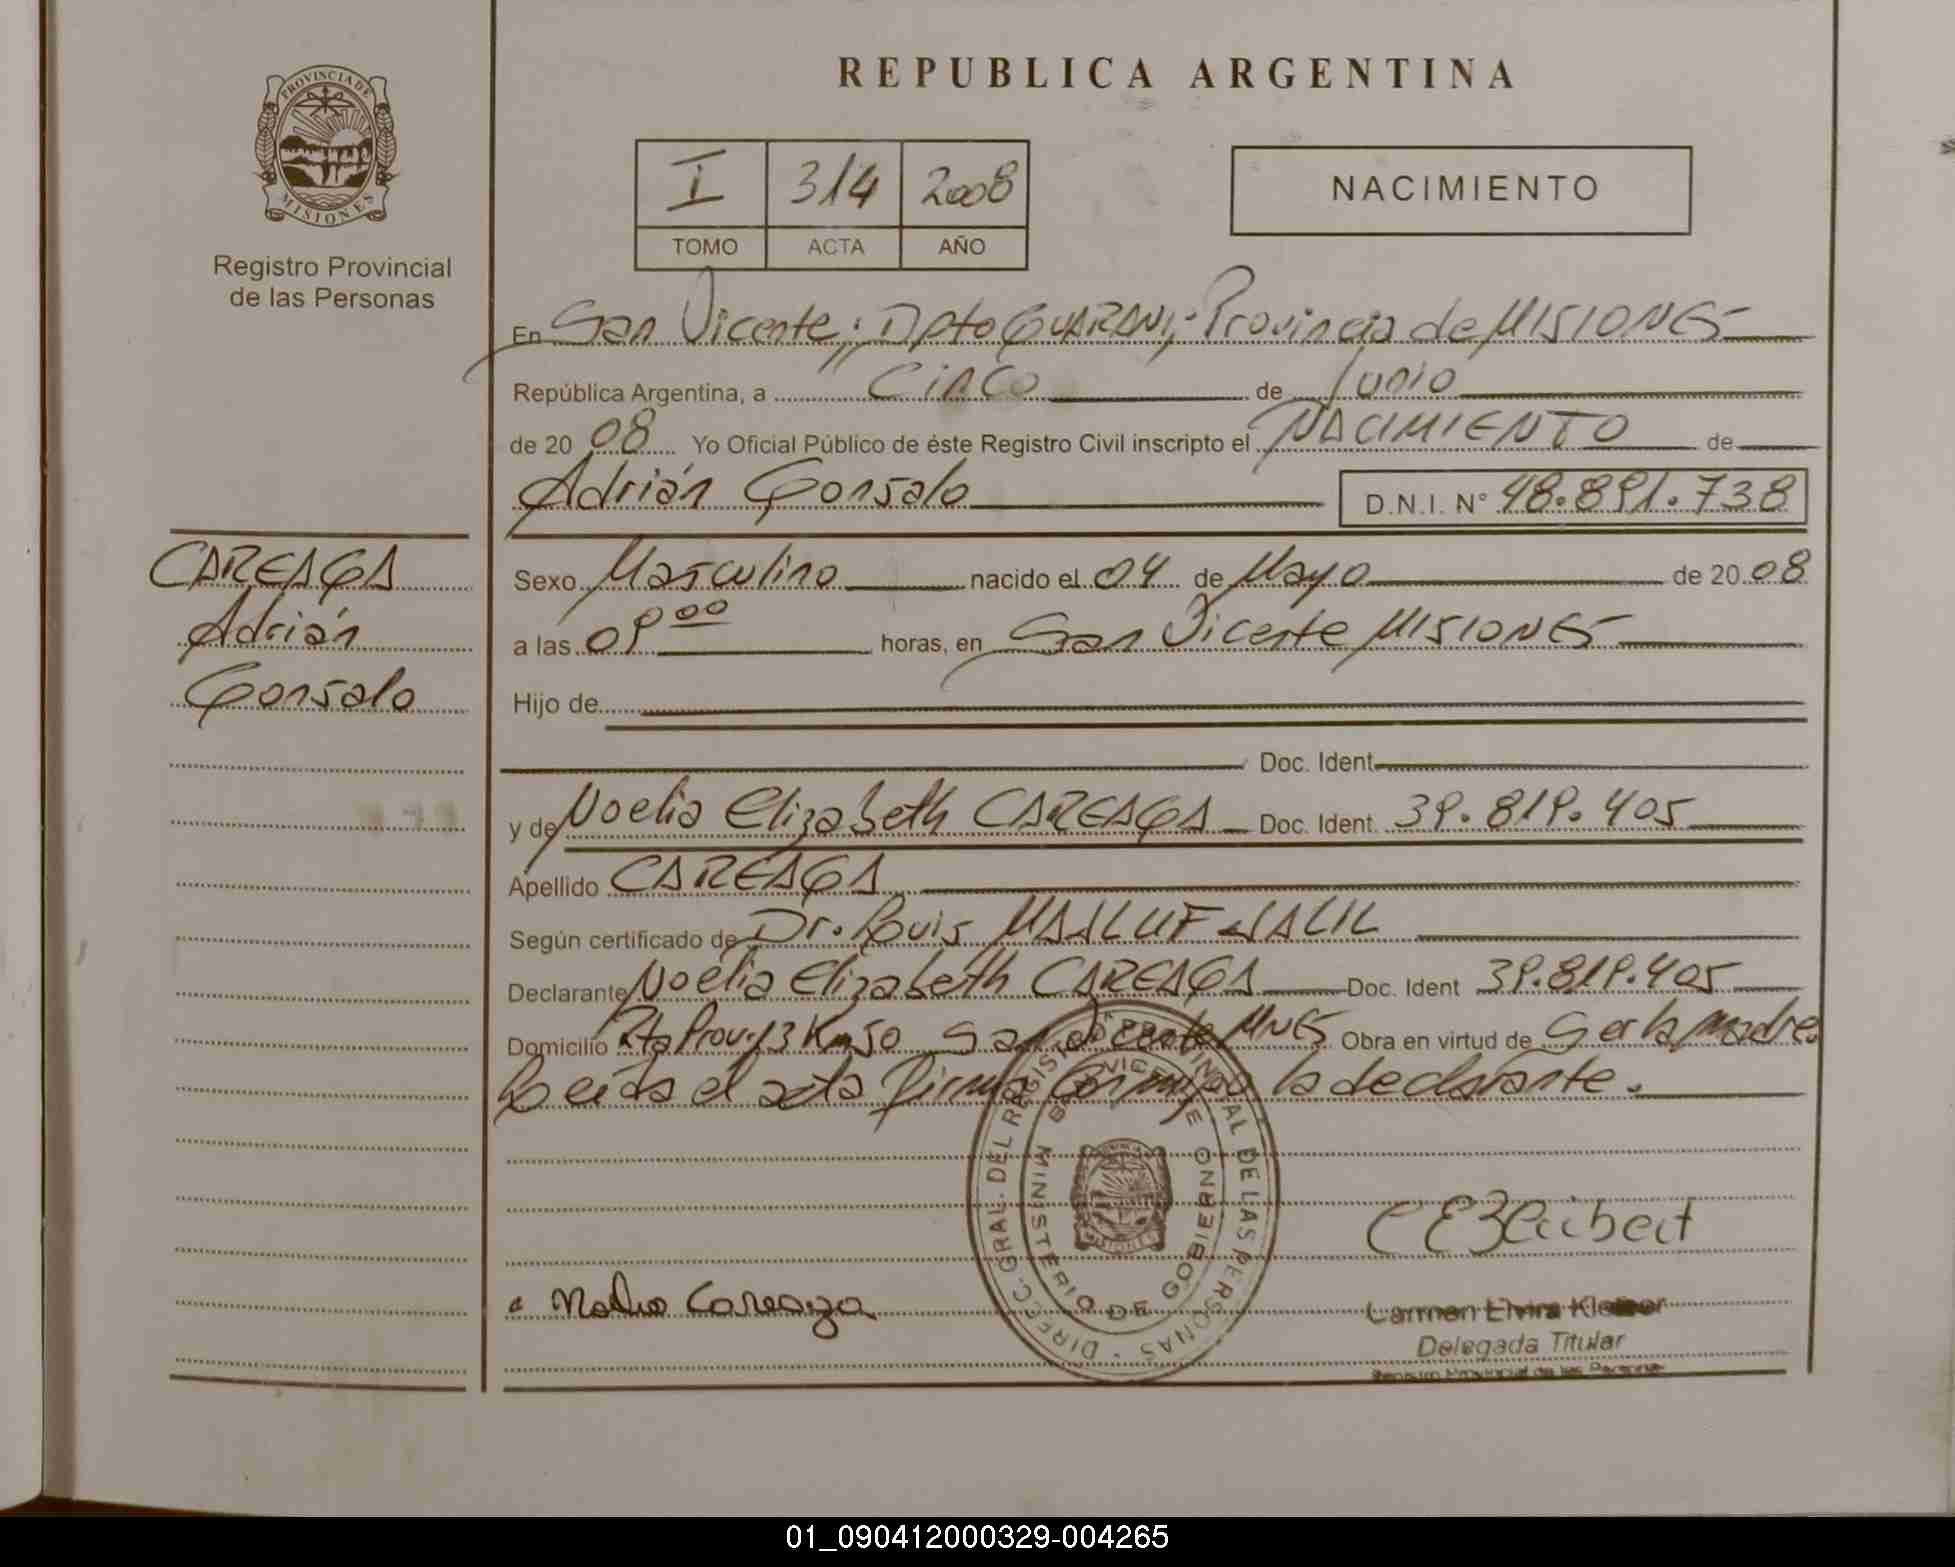 REPUBLICA ARGENTINA
PROVINCIA DE MISIONES
Registro Provincial
de las Personas
I 314 2008
TOMO ACTA AÑO
NACIMIENTO
En San Vicente; Dpto GUARANI; Provincia de MISIONES
República Argentina, a Cinco de Junio
de 20 08 Yo Oficial Público de éste Registro Civil inscripto el NACIMIENTO de
Adrián Gonsalo D.N.I. N° 48.891.738
CAREAGA
Adrián
Gonsalo
Sexo Masculino nacido el 04 de Mayo de 20 08
a las 09 00 horas, en San Vicente MISIONES
Hijo de
Doc. Ident
y de Noelia Elizabeth CAREAGA Doc. Ident. 39.819.405
Apellido CAREAGA
Según certificado de Dr. Luis MAALUF JALIL
Declarante Noelia Elizabeth CAREAGA Doc. Ident 39.819.405
Domicilio Rta Prov. 13 Km 50 San Vicente MNES Obra en virtud de Ser la madre
Leída el acta Firma Conmigo la declarante.
DIREC. GRAL. DEL REGIST. PROVINCIAL DE LAS PERSONAS
MINISTERIO DE GOBIERNO
VICENTE
MISIONES
Noelia Careaga
Carmen Elvira
Delegada Titular
Registro Provincial de las Personas
01_090412000329-004265